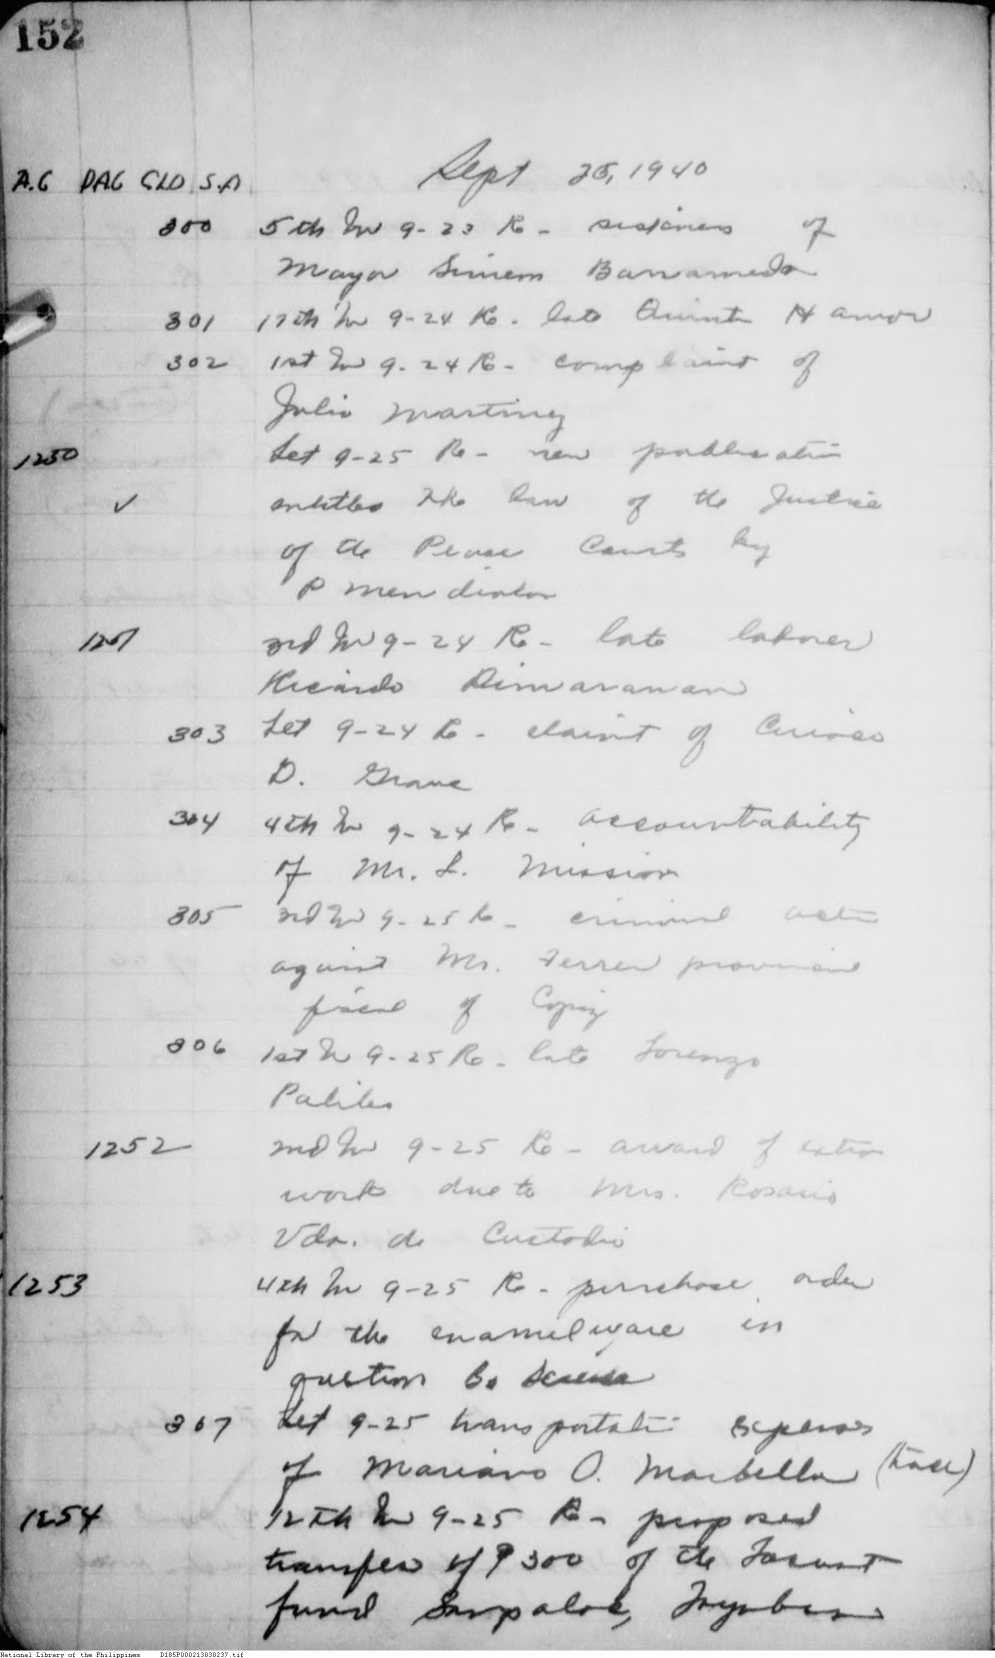 152
Sept 25, 1940
A.G DAG CLD S.A
300 5th In 9-23 Re - of
Mayor Simeon Barrameda
301 17th In 9-24 Re - late Quintin H amor
302 1st In 9-24 Re - complaint of
Julio Martinez
1250 Let 9-25 Re - new publication
✓ entitled The law of the Justice
of the Peace Courts by
P Mendiola
1251 3rd In 9-24 Re - late laborer
Ricardo Dimaranan
303 Let 9-24 Re - claim of
D. Grave
304 4th In 9-24 Re - accountability
of Mr. L. Mission
305 3rd In 9-25 Re - criminal action
against Mr. Ferrer provincial
fiscal of Capiz
306 1st In 9-25 Re - late Lorenzo
Paliles
1252 2nd In 9-25 Re - award of extra
work due to Mrs. Rosario
Vda. de Custodio
1253 4th In 9-25 Re - purchase order
for the enamelware in
question
307 Let 9-25 transportation expenses
of Mariano O. Marbella
1254 12th In 9-25 Re - proposed
transfer of ₱300 of the Locust
fund Sampaloc, Tayabas
National Library of the Philippines D185P000213838237.tif